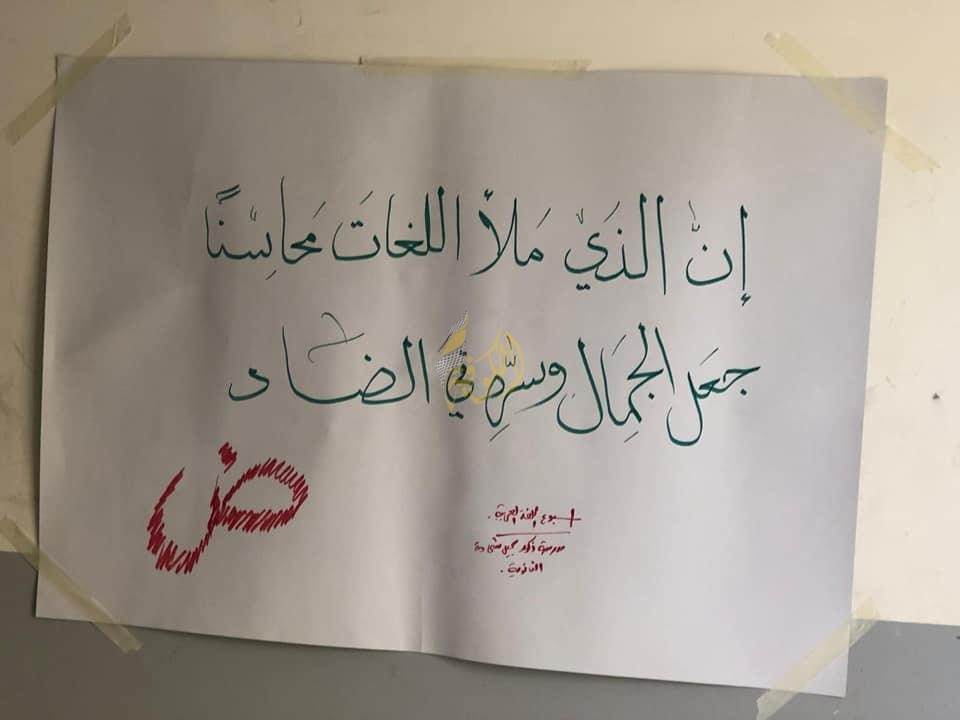 إنّ الذي ملأ اللغاتَ محاسِنًا
جعَل الجمَال وسرّه في الضاد
ض
اسبوع اللغة العربية.
مدرسة ذكور جميل شحادة
الثانوية.